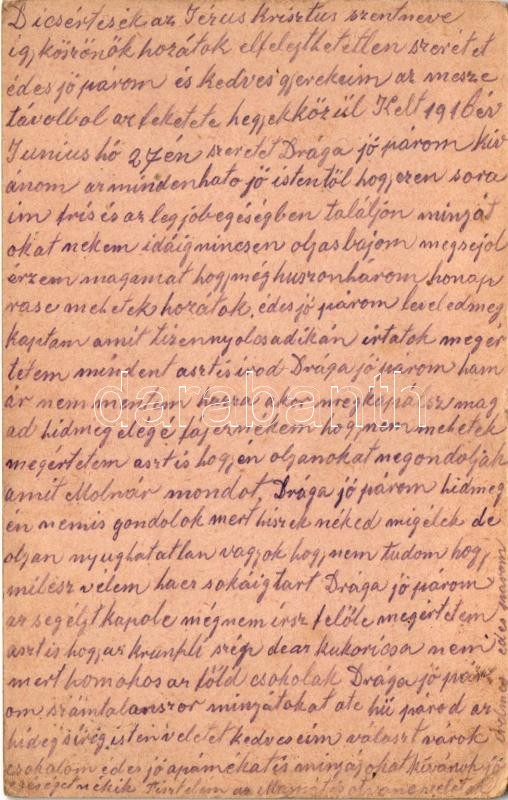 Dicsértesék az Jézus Krisztus szentneve
így köszönök hozátok elfelejthetetlen szeretet
édes jó párom és kedves gjerekeim az mesze
távolbol az fekete hegjekközül Kelt 1916 év
Junius hó 27en szeretet Drága jó párom kiv
ánom az mindenhato jó istentöl hogj ezen sora
im fris és az legjóbegéségben találjon minyát
okat nekem idáig nincsen oljas bajom megsejd
erzem magamat hogj még huszonhárom honap
ra se mehetek hozátok, édes jó párom leveledmeg
kaptam amit tizennyolcsadikán irtatok megér
tétem mindent aszt is irod Drága jó párom ham
ar nem mentem haza akor megkapálsz mag
ad hidmeg elégé fáj ennekem hogj nem mehetek
megértetem aszt is hogj en oljanokat ne gondoljak
amit Molnár mondot, Drága jó párom hidmeg
én nemis gondolok mert hiszek néked migélek de
oljan nyughatatlan vagjok hogj nem tudom hogj
milész velem ha ez sokáig tart Drága jó párom
az segéljt kapole még nem írsz felőle megertetem
aszt is hogj az krumpli szép de az kukoricsa nem
mert homokos az föld csokolak Drága jó pár
om számtalanszor minyátokat a te hü párod az
hideg sirig isten veletet kedveseim választ várok
csokolom édes jó apámékat is minyájokat kivanok jó
egeséget nékik Tisztelem az
édes párom